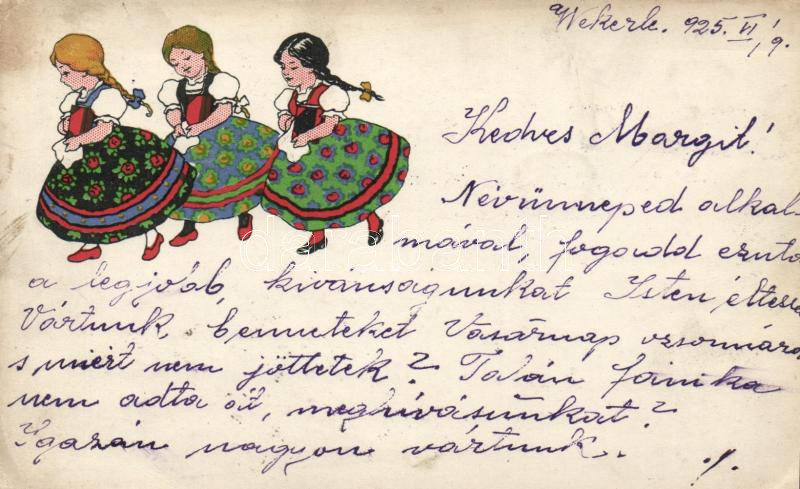 Wekerle. 925. VI/9.
Kedves Margit!
Névünneped alkal-
mával, fogadd ezuto
a legjobb, kivánságunkat Isten éltesse
Vártunk, benneteket Vasárnap uzsonnára
s miért nem jöttetek? Talán
nem adta át, meghívásunkat?
Igazán nagyon vártunk.
./.